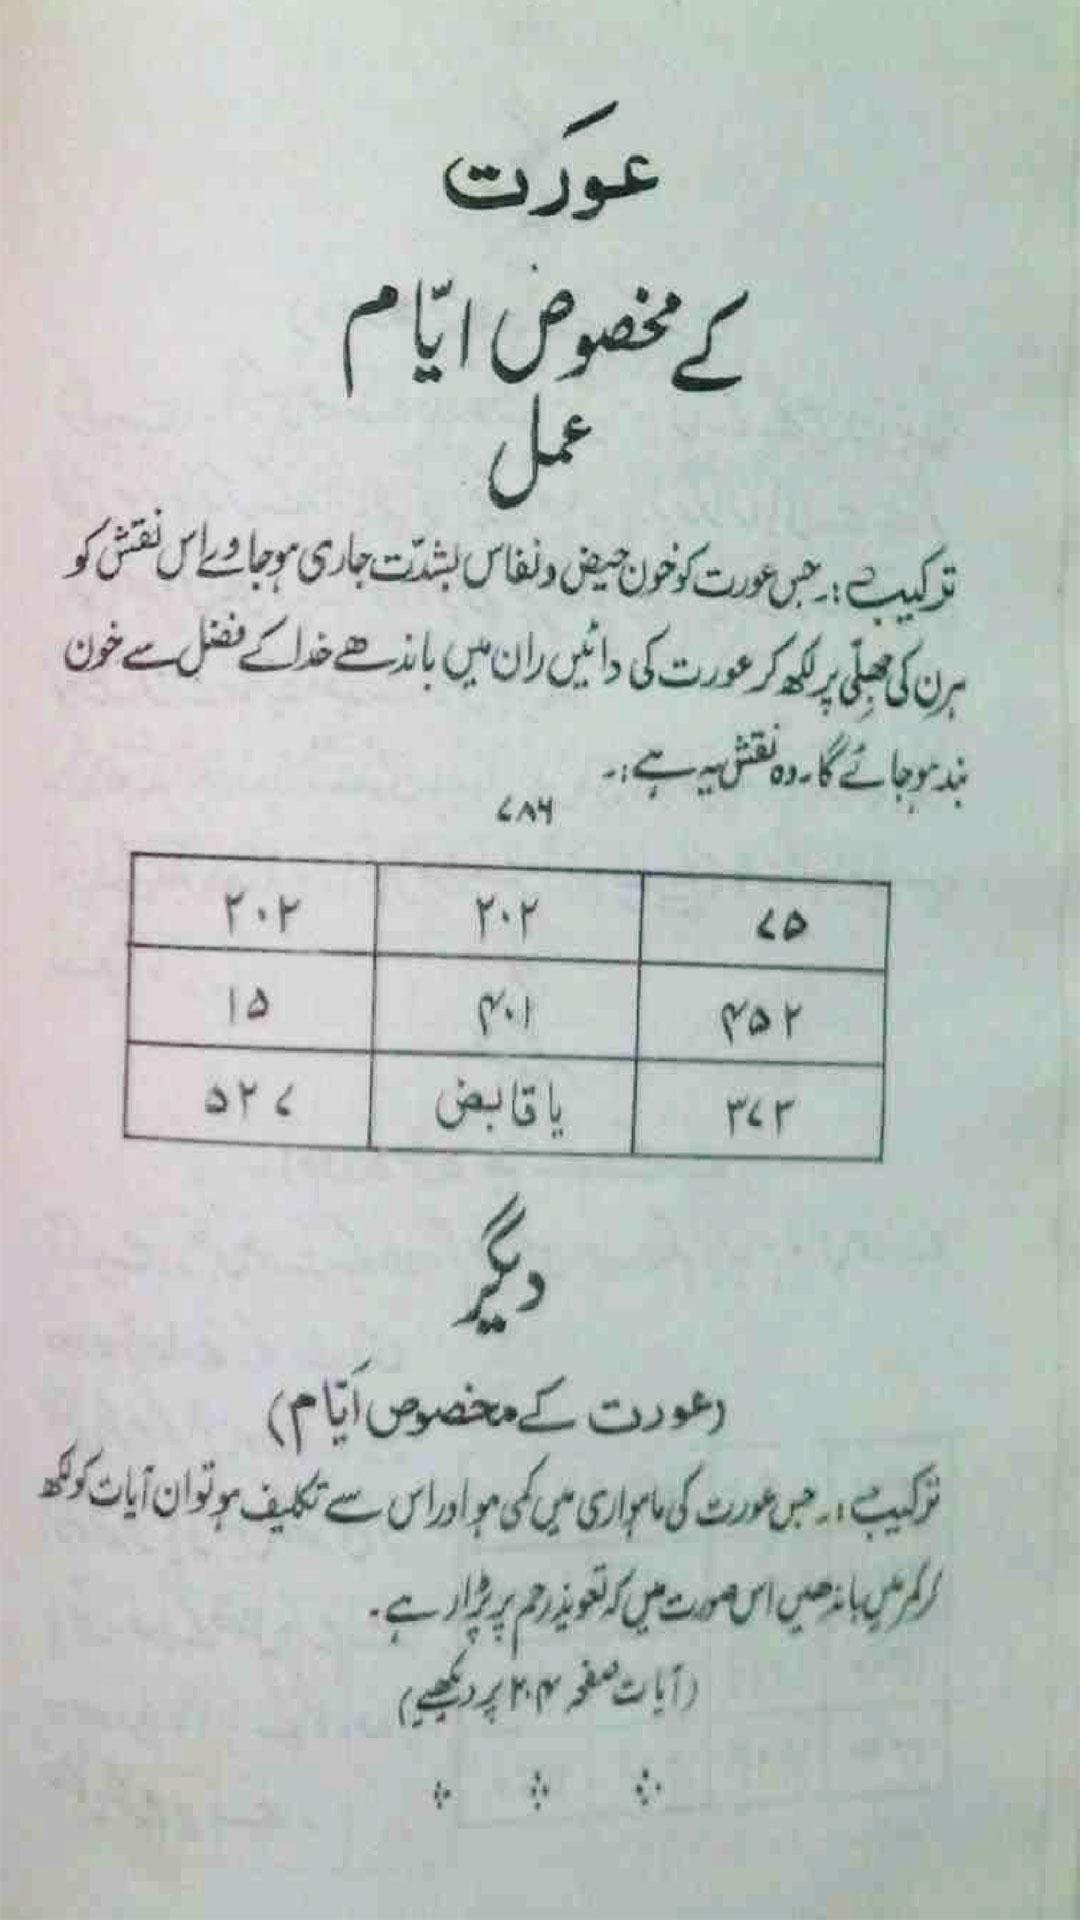 عورَت
کے مخصوص ایّام
عمل
ترکیب:۔ جس عورت کو خون حیض و نفاس بشدّت جاری ہو جاوے اس نقش کو
ہرن کی جھلّی پر لکھ کر عورت کی دائیں ران میں باندھے خدا کے فضل سے خون
بند ہو جائے گا۔ وہ نقش یہ ہے:۔
۷۸۶
۷۵ ۲۰۲ ۲۰۲
۴۵۲ ۴۰۱ ۱۵
۳۷۳ یا قابض ۵۲۷
دیگر
(عورت کے مخصوص اَیّام)
ترکیب:۔ جس عورت کی ماہواری میں کمی ہو اور اس سے تکلیف ہو تو ان آیات کو لکھ
کر کمر میں باندھیں اس صورت میں کہ تعویذ رحم پر پڑا رہے۔
(آیات صفحہ ۲۰۴ پر دیکھیے)